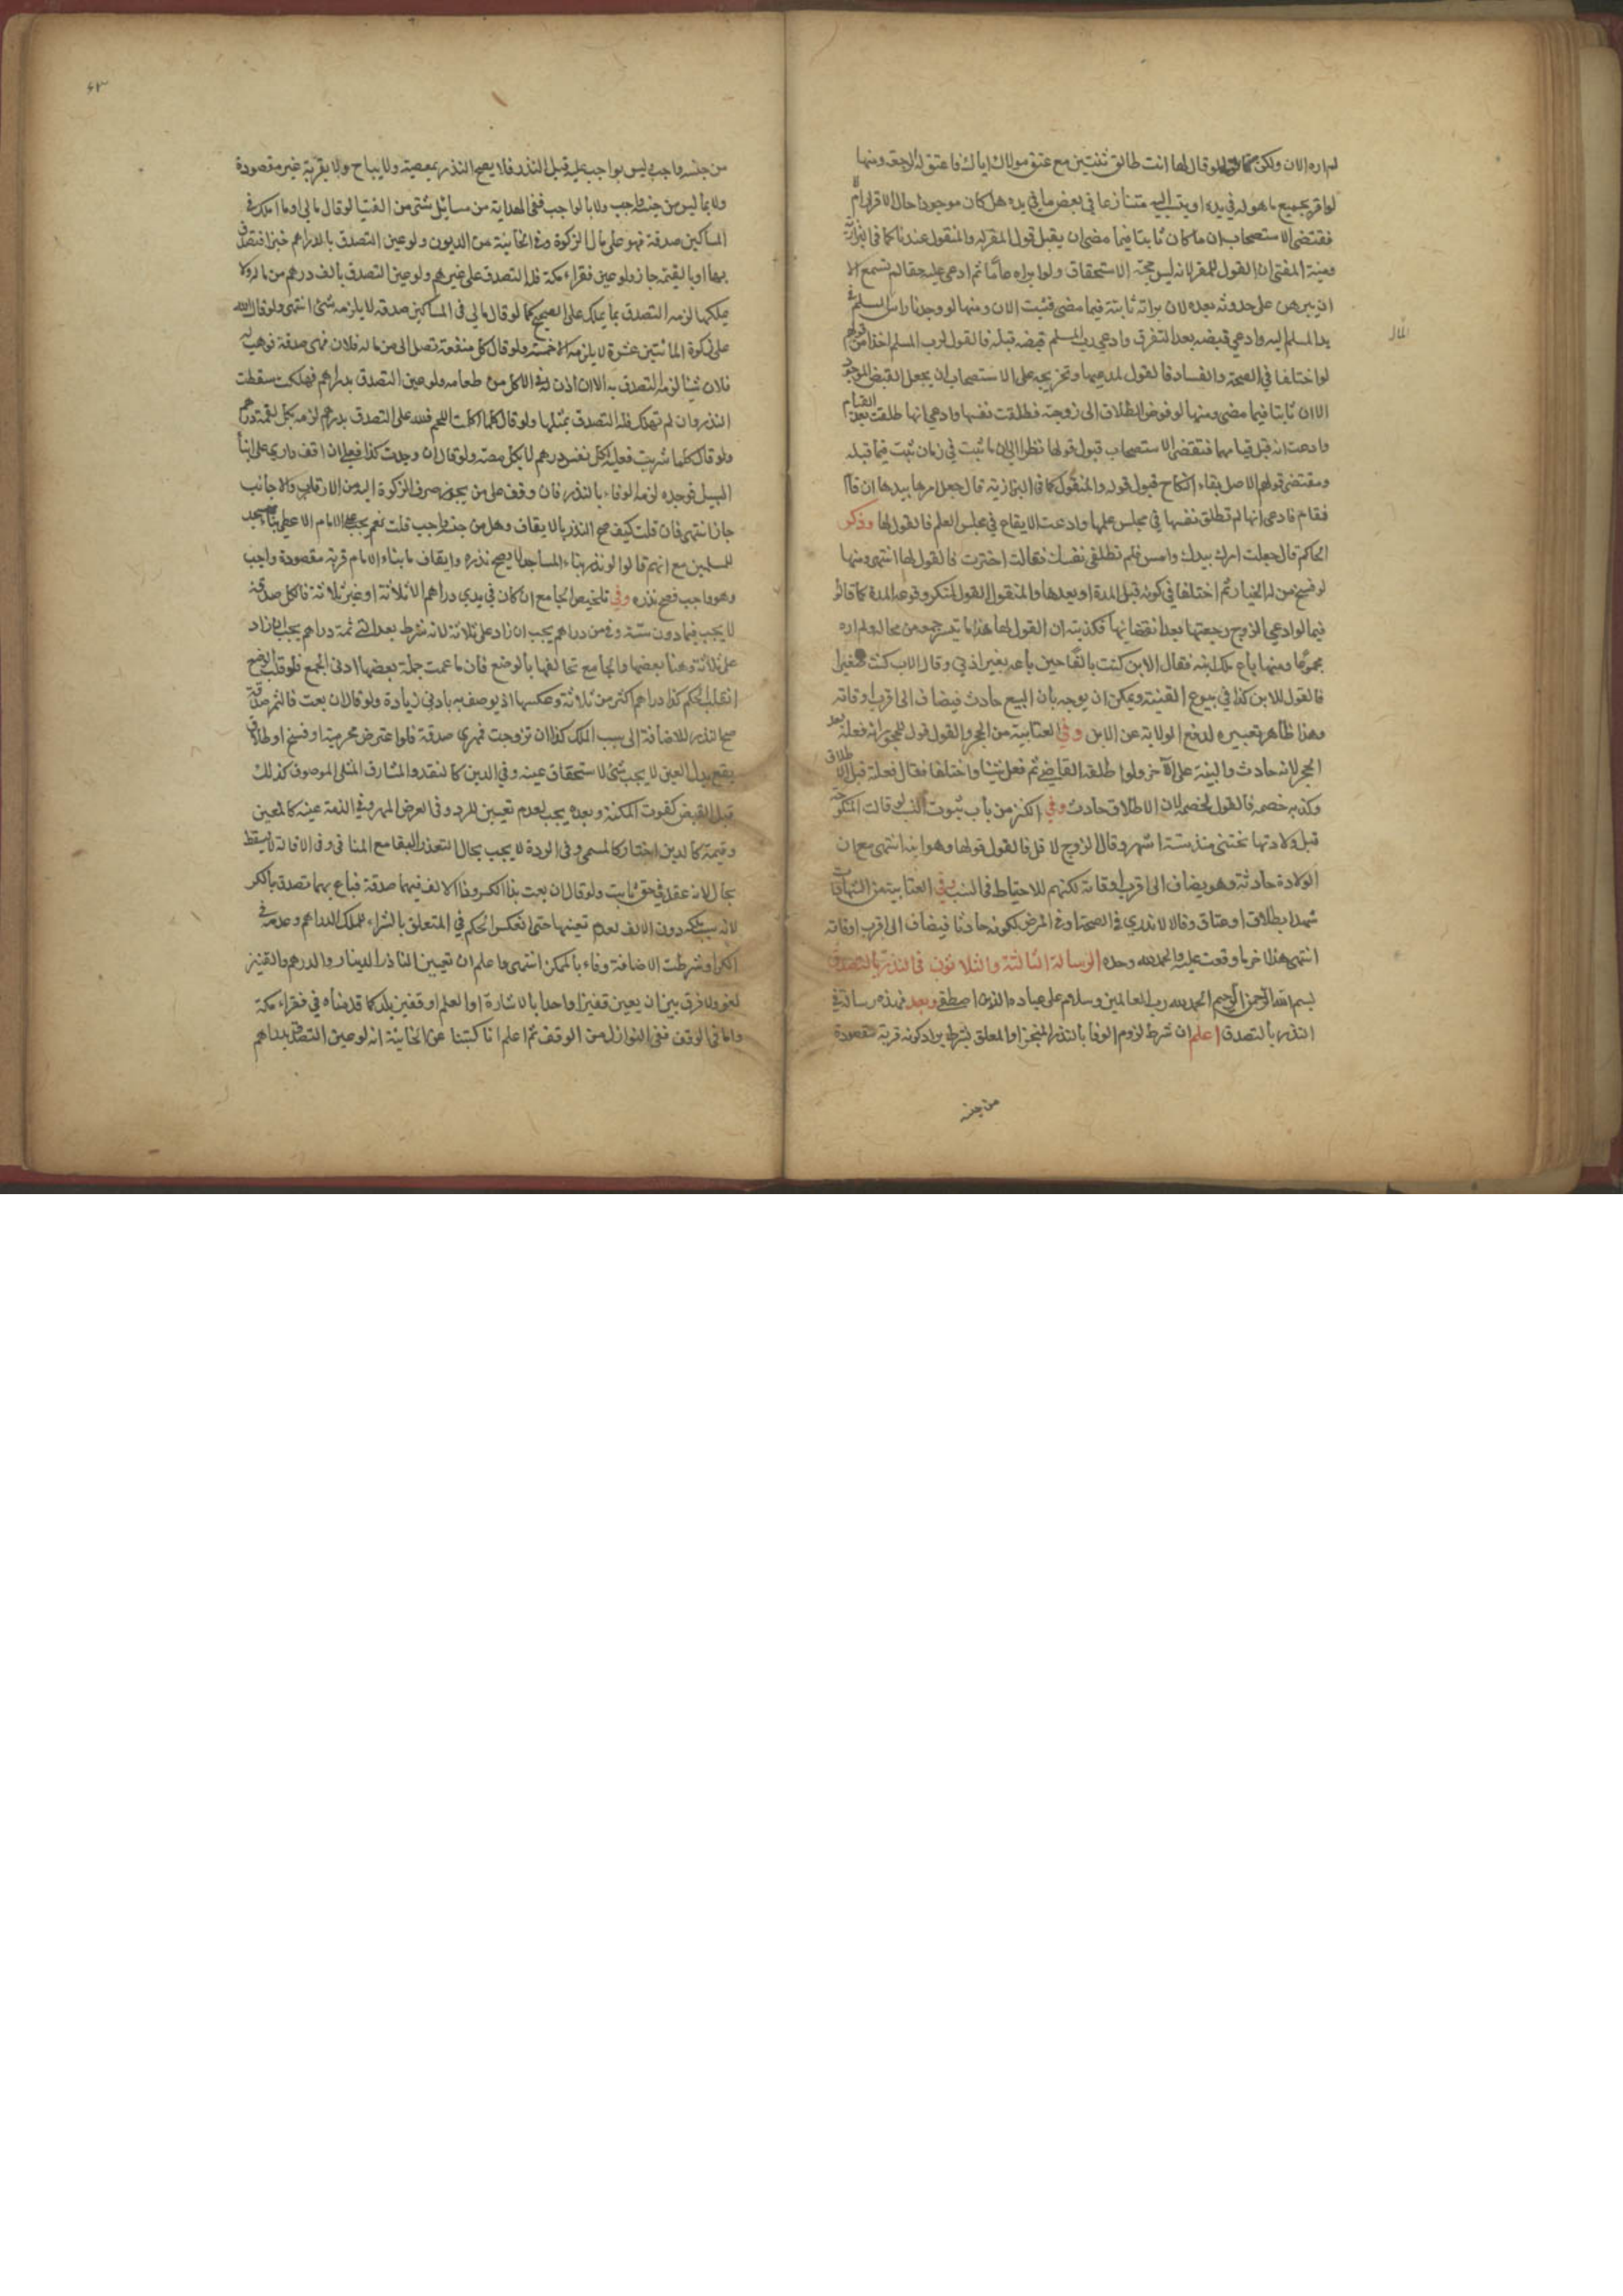 له اره الان ولكن لو قال لها انت طالق ثنتين مع عتق مولاك اياك فاعتق له الرجعة ومنها
لو اقر بجميع ما هو له في يده او ينسب اليه متنازعا في بعض ما في يده هل كان موجودا حال الاقرار ام لا
فمقتضى الاستصحاب ان ما كان ثابتا فيما مضى ان يقبل قول المقر له والمنقول عندنا كما في البزازية
ومنية المفتي ان القول للمقر لانه ليس بحجة الاستحقاق ولو ابراه عاما ثم ادعى عليه حقا لم تسمع الا
ان يبرهن على حدوثه بعده لان براته ثابتة فيما مضى فثبت الان ومنها لو وجدنا راس السلم في
يد المسلم اليه وادعى قبضه بعد التفرق وادعى رب السلم قبضه قبله فالقول لرب السلم اخذا من قولهم
المال
لو اختلفا في الصحة والفساد فالقول لمدعيها وتخريجه على الاستصحاب ان يجعل القبض الموجود
الان ثابتا فيما مضى ومنها لو فوض الطلاق الى زوجته فطلقت نفسها وادعى انها طلقت بعد القيام
وادعت انه قبل قيامها فمقتضى الاستصحاب قبول قولها نظرا الى ان ما ثبت في زمان ثبت فيما قبله
ومقتضى قولهم الاصل بقاء النكاح قبول قوله والمنقول كما في البزازية قال جعل امرها بيدها ان قام
فقام فادعى انها لم تطلق نفسها في مجلس علمها وادعت الايقاع في مجلس العلم فالقول لها وذكر
الحاكم قال جعلت امرك بيدك وامس فلم تطلقي نفسك فقالت اخترت فالقول لها انتهى ومنها
لو فسخ من له الخيار ثم اختلفا في كونه قبل المدة او بعدها والمنقول القول لمنكر وقوعه المدة كما قالوا
فيما لو ادعى الزوج رجعتها بعد انقضائها فكذبته ان القول لها هذا ما تيسر جمعه من محاله ولم اره
مجموعا ومنها باع ملك ابنه فقال الابن كنت بالغا حين باعه بغير اذني وقال الاب كنت صغيرا
فالقول للابن كذا في بيوع القنية ويمكن ان يوجه بان البيع حادث فيضاف الى اقرب اوقاته
وهذا ظاهر تعبيره لدفع الولاية عن الابن وفي العتابية من الحجر والقول قول المحجور انه فعله بعد
الحجر لانه حادث والبينة على الآخر ولو اطلقه القاضي ثم فعل شيا واختلفا فقال فعلته قبل الاطلاق
وكذبه خصمه فالقول لخصمه لان الاطلاق حادث وفي الكنز من باب ثبوت النسب قالت المنكوحة
قبل ولادتها نكحتني منذ ستة اشهر وقال الزوج لاقل فالقول قولها وهو ابنه انتهى مع ان
الولادة حادثة وهو يضاف الى اقرب اوقاته لكنهم للاحتياط في النسب وفي العتابية من الشهادات
شهدا بطلاق او عتاق وقالا لا ندري في الصحة او في المرض ككونه حادثا فيضاف الى اقرب اوقاته
انتهى هذا اخر ما وقعت عليه والحمد لله وحده الرسالة الثالثة والثلاثون في النذر بالتصدق
بسم الله الرحمن الرحيم الحمد لله رب العالمين وسلام على عباده الذين اصطفى وبعد فهذه رسالة في
النذر بالتصدق اعلم ان شرط لزوم الوفا بالنذر المنجز او المعلق بشرط يراد كونه قربة مقصودة
من جنسه
٦٣
من جنسه واجب ليس بواجب عليه قبل النذر فلا يصح النذر بمعصية ولا بمباح ولا بقربة غير مقصودة
ولا بما ليس من جنسه واجب ولا بالواجب ففي الهداية من مسائل شتى من الفتيا لو قال مالي او ما املك في
المساكين صدقة فهو على مال الزكوة وفي الخانية من الديون ولو عين التصدق بالدراهم خبزا فتصدق
بها او بالقيمة جاز ولو عين فقراء مكة فله التصدق على غيرهم ولو عين التصدق بالف درهم من ماله ولا
يملكها لزمه التصدق بما يملك على الصحيح كما لو قال مالي في المساكين صدقة لا يلزمه شئ انتهى ولو قال لله
علي زكوة المائتين عشرة لا يلزمه الا خمسة ولو قال كل منفعة تصل الي من مال فلان فهي صدقة فوهب له
فلان شيئا لزمه التصدق به الا ان اذن له في الاكل من طعامه ولو عين التصدق بدراهم فهلكت سقطت
النذر وان لم تهلك فله التصدق بمثلها ولو قال كلما اكلت اللحم فلله علي التصدق بدرهم لزمه بكل لقمة درهم
ولو قال كلما شربت فعليه بكل نفس درهم لا بكل مصة ولو قال ان وجدت كذا فعلي ان اقف داري على ابناء
السبيل فوجده لزمه الوفاء بالنذر فان وقف على من يجوز صرف الزكوة اليه من الاقارب والاجانب
جاز انتهى فان قلت كيف صح النذر بالايقاف وهل من جنسه واجب قلت نعم يجب على الامام الاعظم بناء مسجد
للمسلمين مع انهم قالوا لو نذر بناء المساجد لا يصح نذره وايقاف ما بناه الامام قربة مقصودة واجب
وهو واجب فصح نذره وفي تلخيص الجامع ان كان في يدي دراهم الا ثلاثة او غير ثلاثة فالكل صدقة
لا يجب فيما دون ستة وفي من دراهم يجب ان زاد على ثلاثة لانه شرط بعد الثلثة دراهم يجب ان زاد
على ثلاثة وهنا بعضها والجامع تخالفها بالوضع فان ما عمت جملة بعضها ادنى الجمع فلو قلب الوضع
انقلب الحكم كذا دراهم اكثر من ثلاثة وعكسها اذ يوصف به بادنى زيادة ولو قال ان بعت فالثمر صدقة
صح النذر للاضافة الى سبب الملك كذا ان تزوجت فمهري صدقة فلو اعترض محرمية او فسخ او طلاق
يقع بدل العين لا يجب شئ لاستحقاق عينه وفي الدين كالنقد والمشار في المثلي الموصوف كذلك
قبل القبض كفوت المكنة وبعده يجب لعدم تعيين للرد وفي العرض المهر وفي الذمة عينه كالمعين
وقيمته كالدين اختيار كالمسمى وفي الردة لا يجب بحال لتعذر البقا مع المنافي وفي الاقالة لا يسقط
بحال لانه عقد في حق ثابت ولو قال ان بعت بذا الكر وذا الالف فهما صدقة فباع بهما تصدق بالكر
لانه سبب ملكه دون الالف لعدم تعينها حتى انعكس الحكم في المتعلق بالشراء لملك الدراهم وعدمه في
الكر او شرطت الاضافة وفاء بالممكن انتهى واعلم ان تعيين الناذر الدينار والدرهم والفقير
لغو ولا فرق بين ان يعين فقيرا واحدا بالاشارة او العلم او فقير بلد كما قدمناه في فقراء مكة
واما في الوقف ففي النوازل من الوقف ثم اعلم انا كتبنا عن الخانية انه لو عين التصدق بدراهم